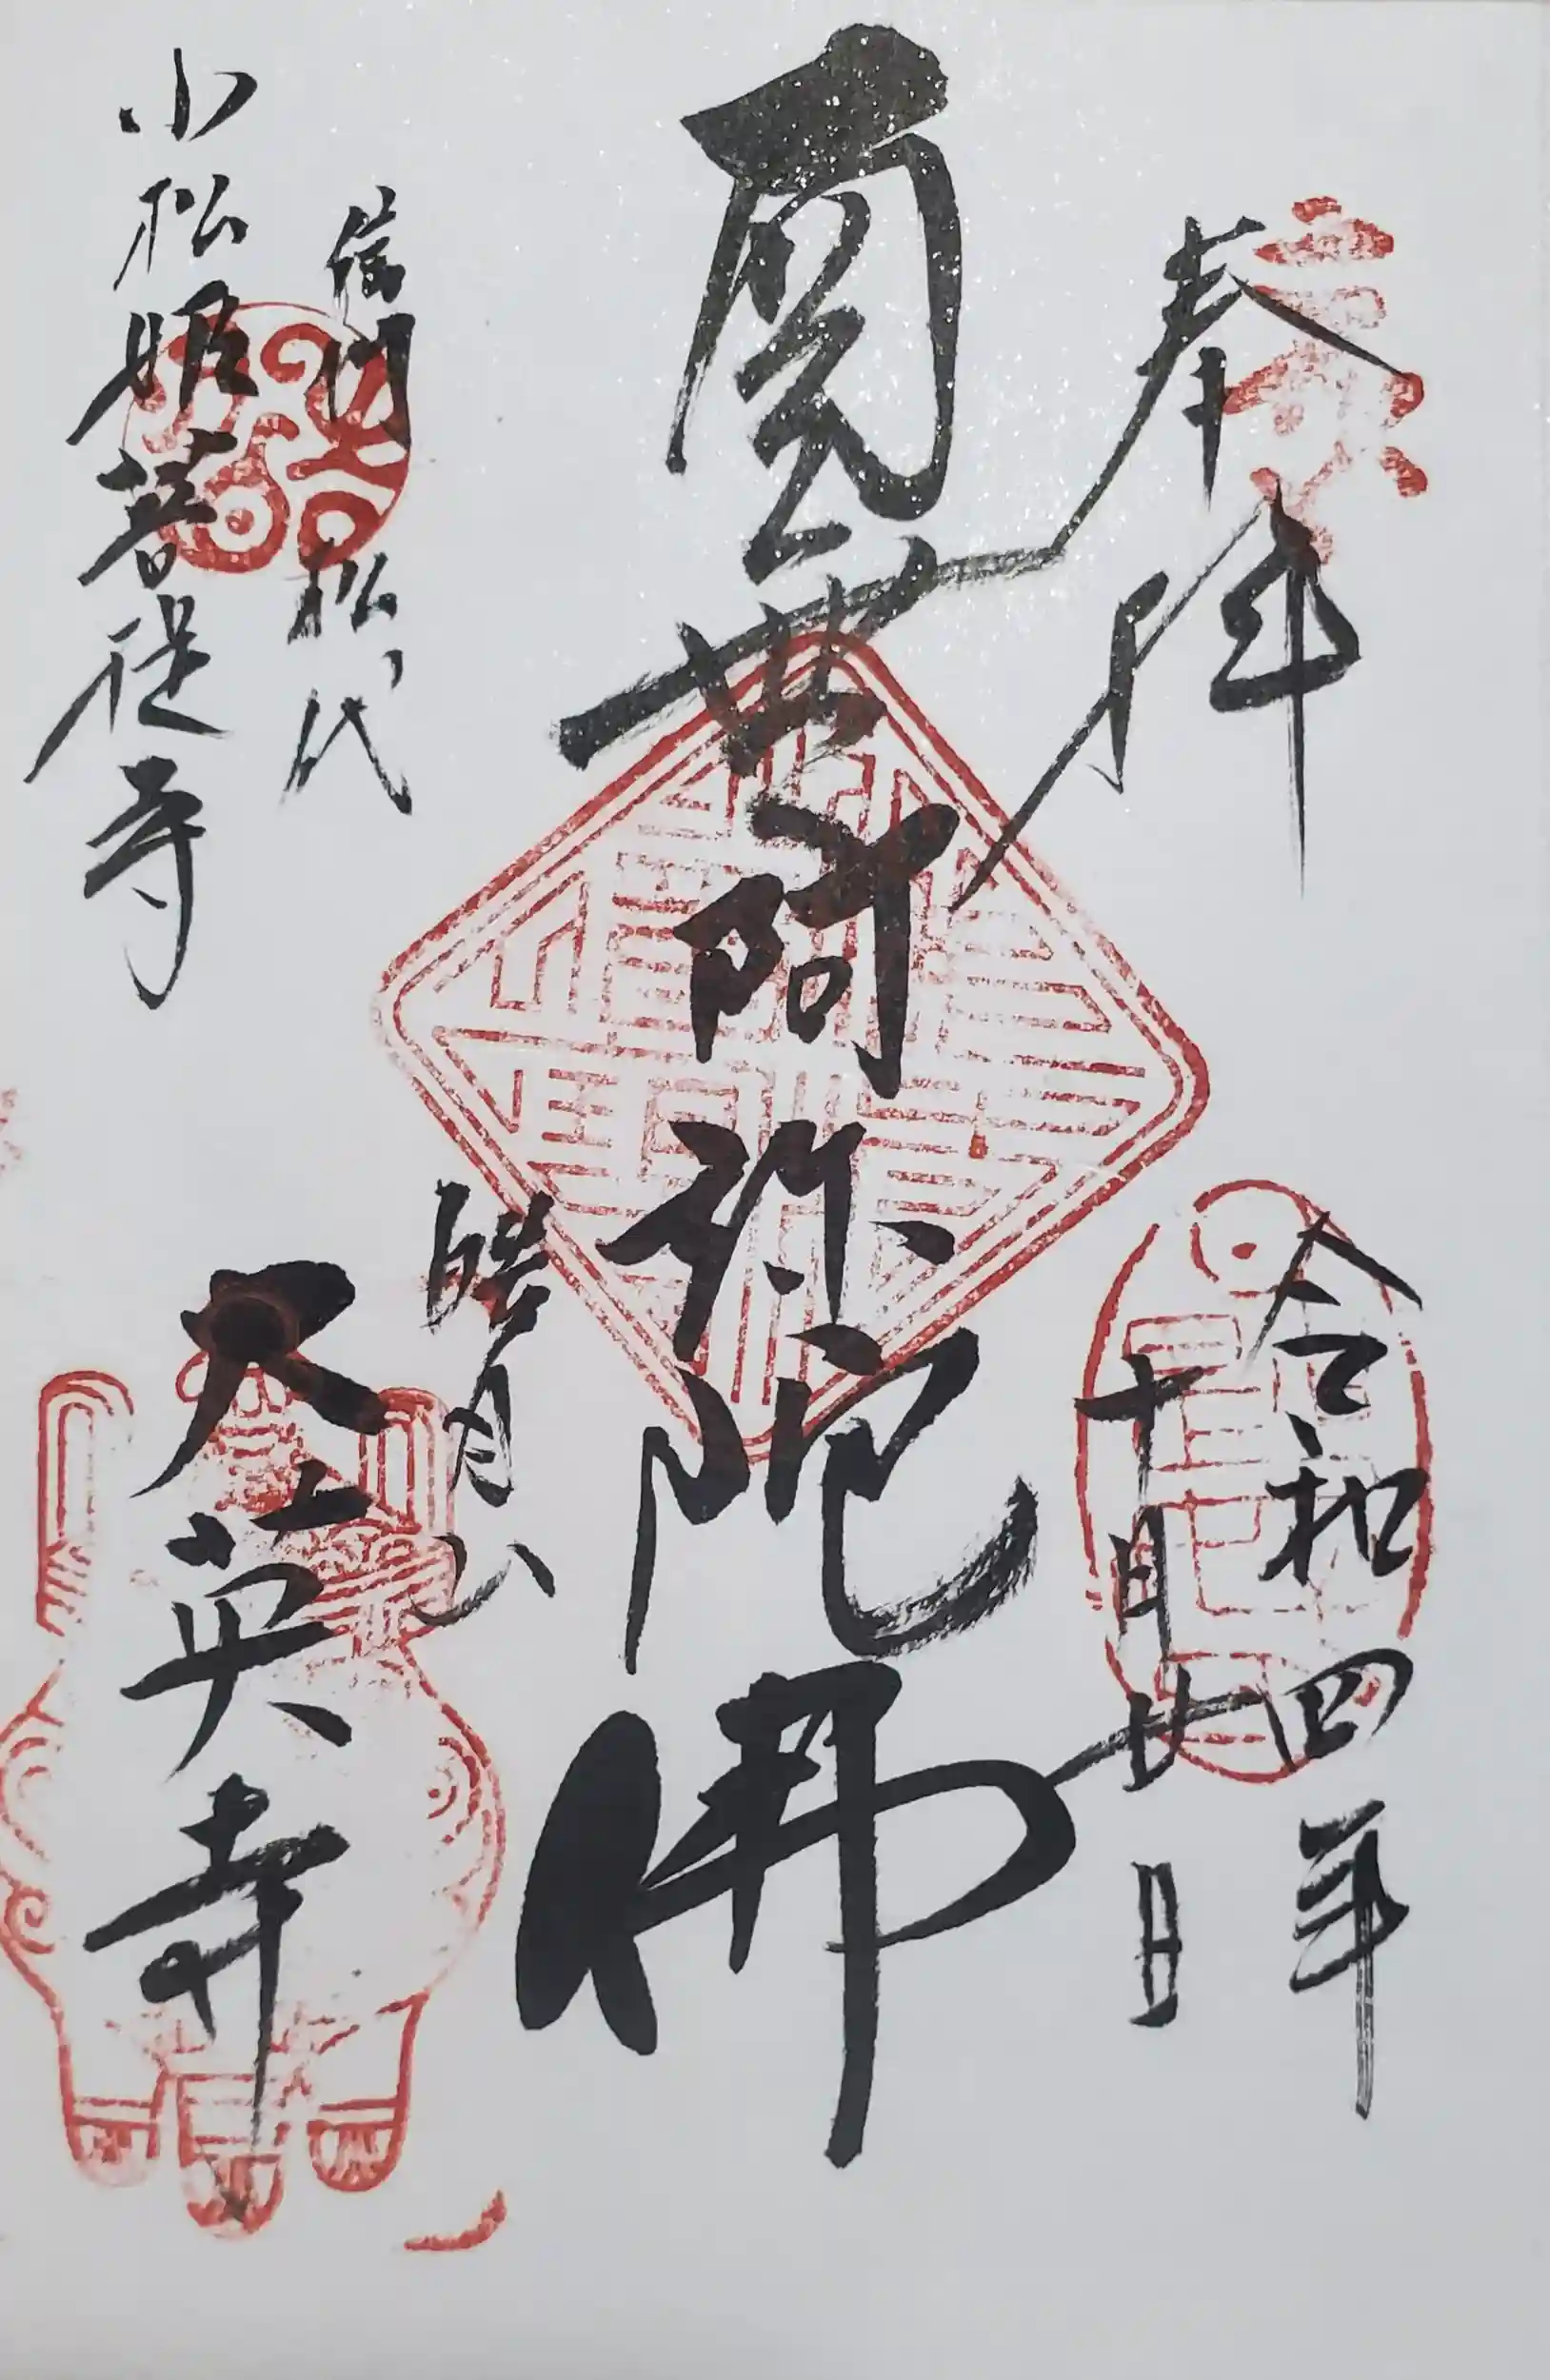 奉拝
令和四年
十月廿日
阿弥陀佛
信州松代
皓月山
小松姫菩提寺
大英寺